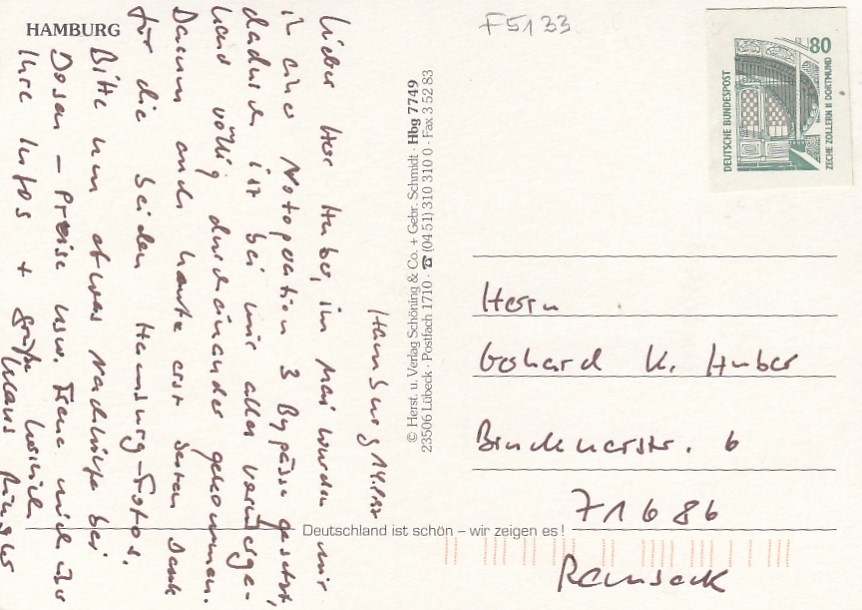 HAMBURG
F5133
80
DEUTSCHE BUNDESPOST
ZECHE ZOLLERN II DORTMUND
Hamburg 14.
Lieber Herr Huber, im Mai wurden mir
in einer Notoperation 3 Bypässe gesetzt,
dadurch ist bei mir alles
völlig durcheinander gekommen.
Darum auch heute erst besten Dank
für die beiden Hamburg-Fotos.
Bitte um etwas Nachhilfe bei
Dosen – Preise usw. Freue mich über
Ihre Infos + grüße herzlich
Klaus
© Herst. u. Verlag Schöning & Co. + Gebr. Schmidt · Hbg 7749
23506 Lübeck · Postfach 1710 · ☎ (04 51) 310 310 0 · Fax 3 52 83
Herrn
Gerhard K. Huber
Brucknerstr. 6
71686
Remseck
Deutschland ist schön – wir zeigen es!